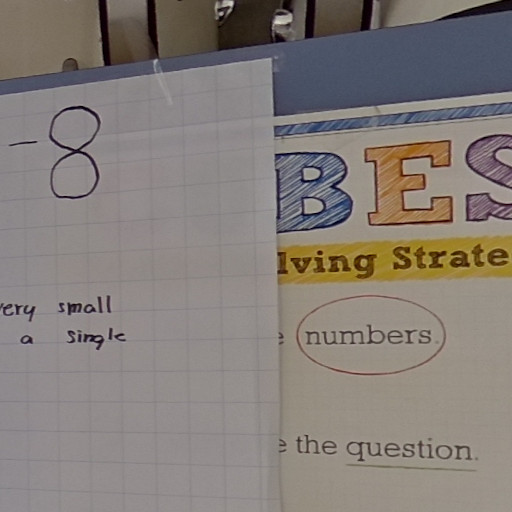 -8
very small
a single
BES
lving Strate
e numbers.
e the question.